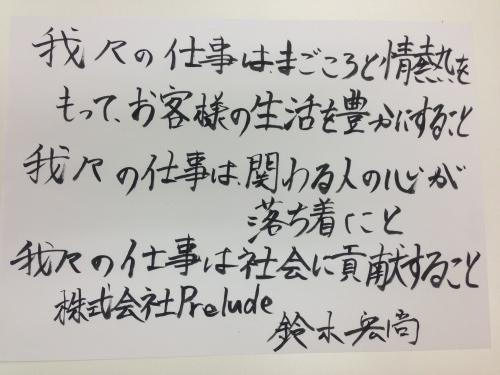 我々の仕事は、まごころと情熱を
もって、お客様の生活を豊かにすること
我々の仕事は、関わる人の心が
落ち着くこと
我々の仕事は社会に貢献すること
株式会社Prelude
鈴木宏尚